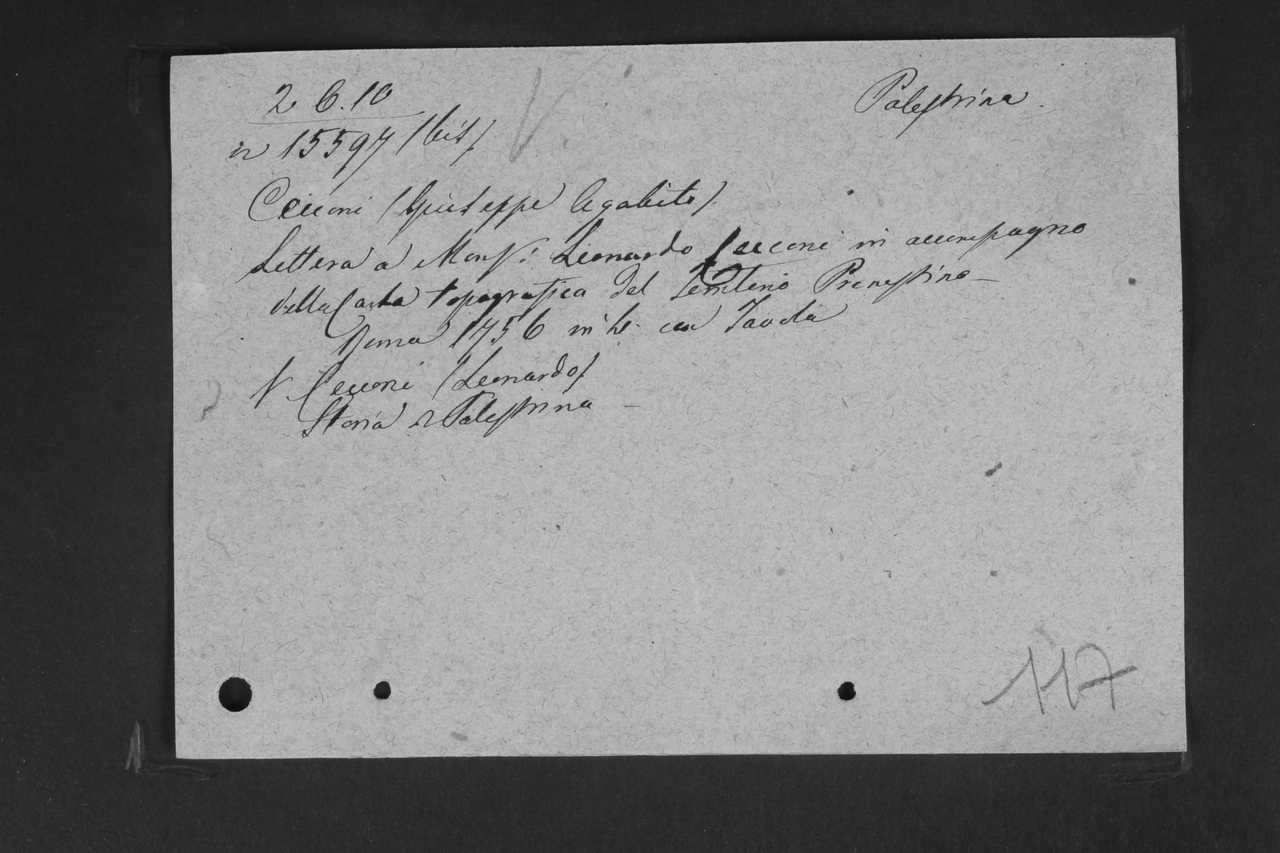 2 6.10
Palestrina.
n 15597 (bis)
Cecconi (Giuseppe Agabito).
Lettera a Monsr. Leonardo Cecconi in accompagno
della Carta topografica del Territorio Prenestino —
Roma 1756 in 4o. con Tavola
V Cecconi (Leonardo)
Storia di Palestrina —
117